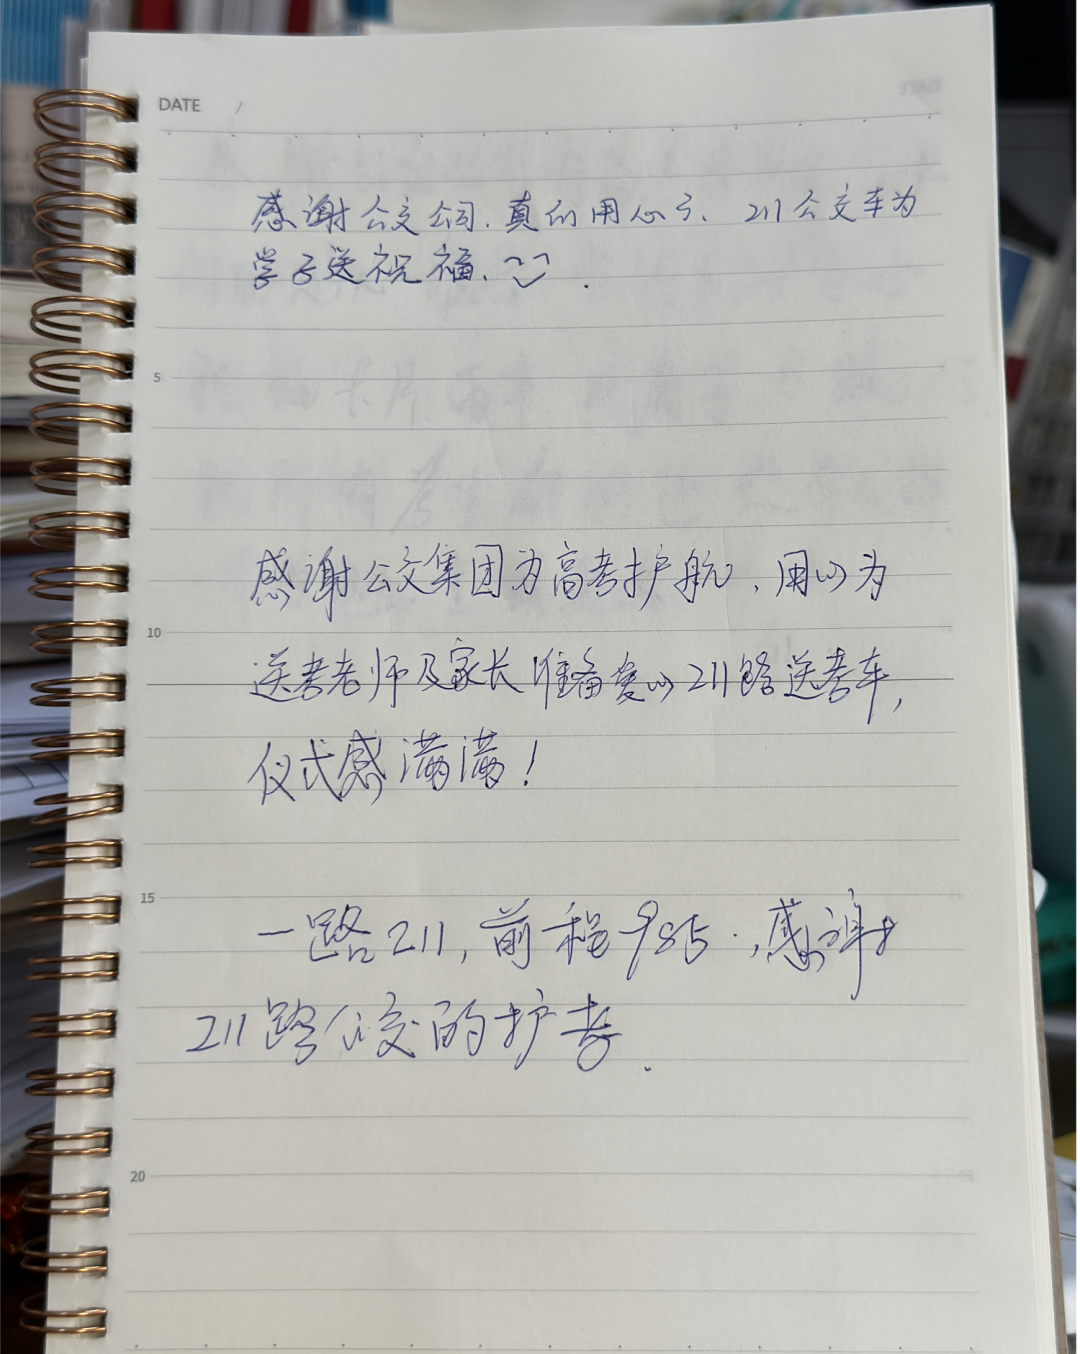 DATE /
感谢公交公司.真的用心了、211公交车为
学子送祝福.
5
感谢公交集团为高考护航、用心为
10
送考老师及家长准备爱心211路送考车,
仪式感满满!
15
一路211,前程985.,感谢
211路公交的护考.
20